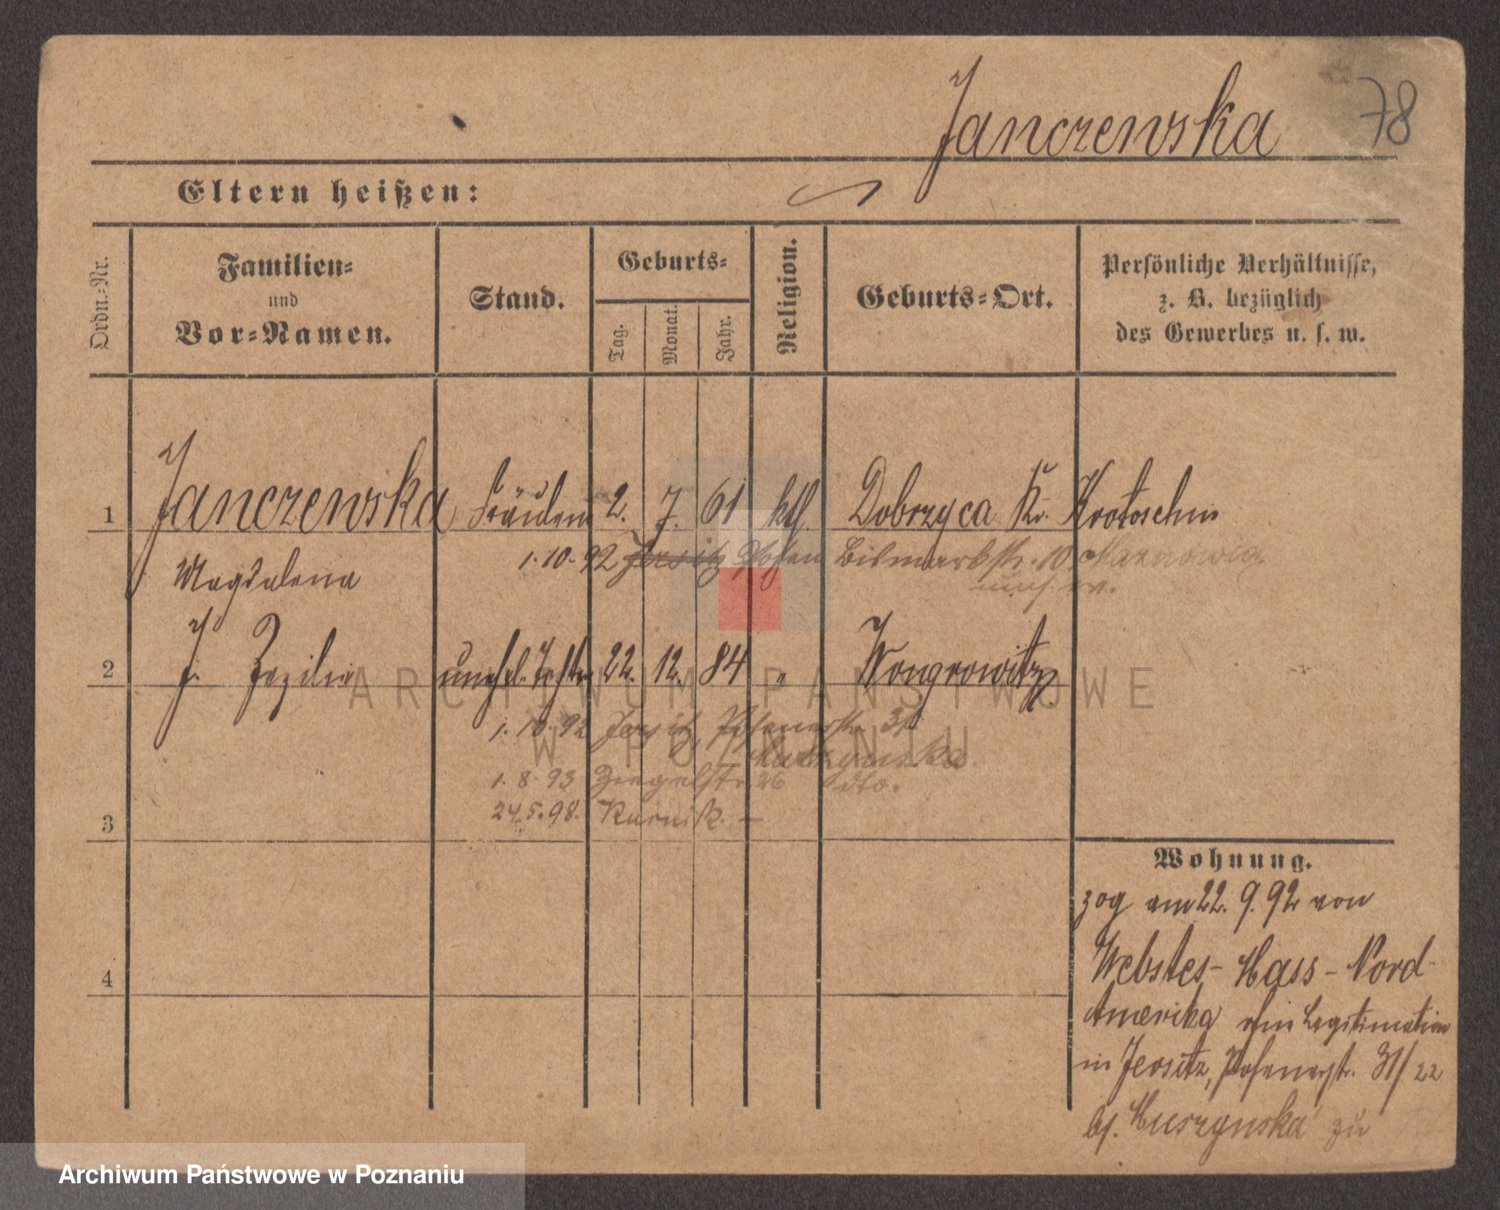 Janczewska 78
Eltern heißen:
Ordn.-Nr.
Familien-
und
Vor-Namen.
Stand.
Geburts-
Tag.
Monat.
Jahr.
Religion.
Geburts-Ort.
Persönliche Verhältnisse,
z. B. bezüglich
des Gewerbes u. s. w.
1 Janczewska Fräulein 2. 7. 61 ktl Dobrzyca Kr. Krotoschin
Magdalena
1.10.92 Jersitz Posen Bismarckstr. 10.
2 J. Zezilie unehel. Tochter 22. 12. 84 " Wongrowitz
1.10.92 Jersitz, Posenerstr. 31
1.8.93 Ziegelstr. 26 dto.
24.5.98. Kurnik —
3
4
Wohnung.
zog am 22.9.92 von
Webstes-Hass-Nord-
Amerika ohne Legitimation
in Jersitz, Posenerstr. 31/22
bei zu
ARCHIWUM PAŃSTWOWE
W POZNANIU
Archiwum Państwowe w Poznaniu